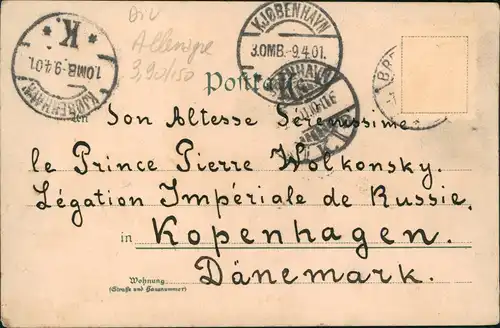 Div
Allemagne
3,90/150
KJØBENHAVN
3.OMB.-9.4.01.
KJØBENHAVN
1.OMB-9.4.01.
* K. *
Postkarte
An Son Altesse Sérénissime
le Prince Pierre Wolkonsky.
Légation Impériale de Russie,
in Kopenhagen.
Dänemark.
Wohnung
(Straße und Hausnummer)